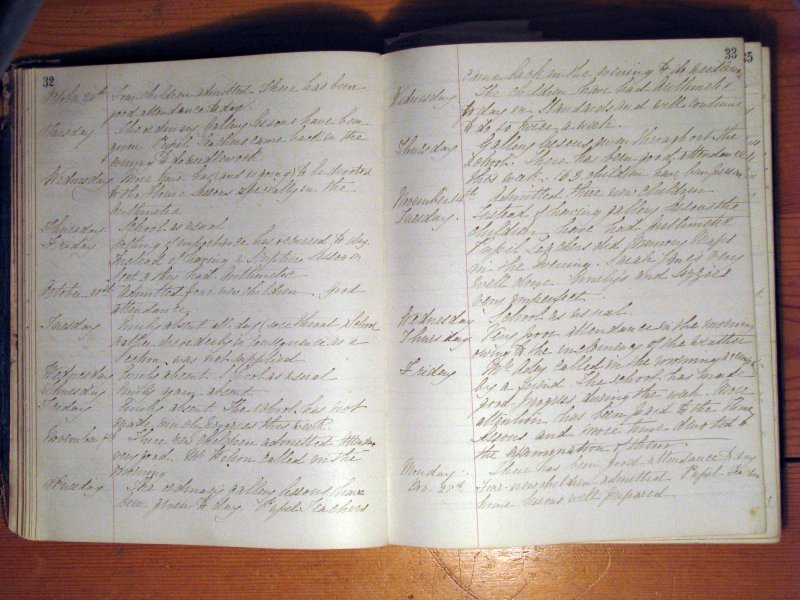 32
October 24th Four children admitted. There has been
good attendance to day.
Tuesday The ordinary gallery lessons have been
given. Pupil Teachers came back in the
evening to do needlework.
Wednesday More time has (and is going) to be devoted
to the Home lessons especially in the
Arithmetic
Thursday School as usual
Friday Nothing of importance has occurred to day.
Instead of having a Scripture lesson
3 they had Arithmetic
October 31st Admitted four new children. Good
attendance.
Tuesday Emily absent all day (sore throat) School
rather disorderly in consequence as a
was not supplied
Wednesday Emily absent. School as usual
Thursday Emily again absent
Friday Emily absent. The School has not
made much progress this week.
November 7th Three new children admitted. Attendance
very good. Mr Nelson called in the
morning
Tuesday The ordinary gallery lessons have
been given to day. Pupil Teachers
33
came back in the evening to do needlework
Wednesday The children have had Arithmetic
to day in Standards and will continue
to do so twice a week.
Thursday Gallery lessons given throughout the
School. There has been good attendance
this week. 163 children have been present
November 14th Admitted three new children
Tuesday Instead of having gallery lessons the
children have had Arithmetic
Pupil Teachers did Memory Maps
in the evening. Sarah Ann's very
well done Emily's and Lizzie's
very imperfect.
Wednesday School as usual.
Thursday Very poor attendance in the morning
owing to the inclemency of the weather
Friday Mr called in the morning
by a friend. The school has made
good progress during the week. More
attention has been paid to the Home
lessons and more time devoted to
the examination of them.
Monday There has been good attendance to day
Nov. 20th Four new children admitted. Pupil Teachers
home lessons well prepared
35